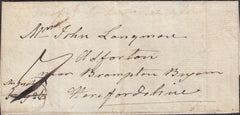 Mr John Longmore
Adforton
near Brampton Bryan
Herefordshire